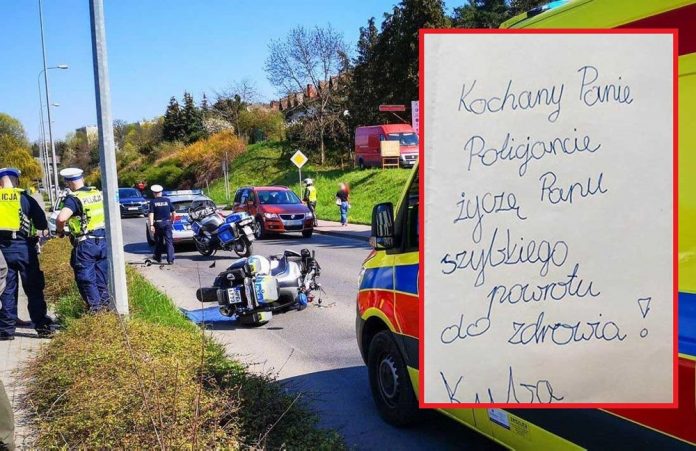 Kochany Panie
Policjancie
życzę Panu
szybkiego
powrotu
do zdrowia!
Kuba
POLICJA